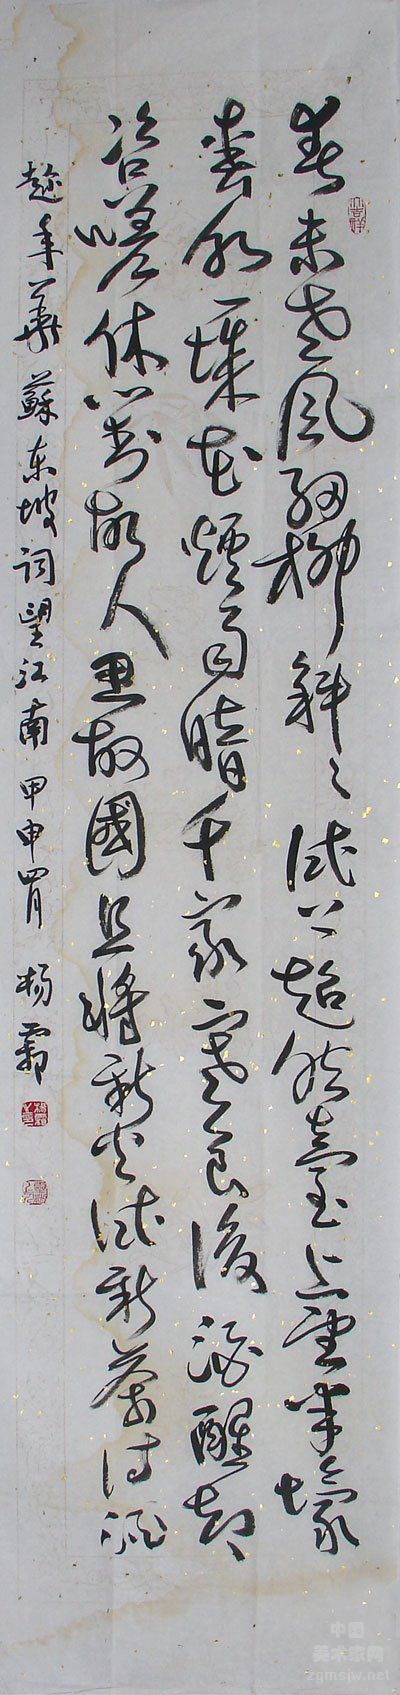 春未老風細柳斜〻試上超然臺上望半壕
春水一城花煙雨暗千家寒食後酒醒却
咨嗟休對故人思故國且將新火試新茶詩酒
趁年華蘇东坡词望江南甲申四月 杨
中国
美术家网
zgmsjw.net